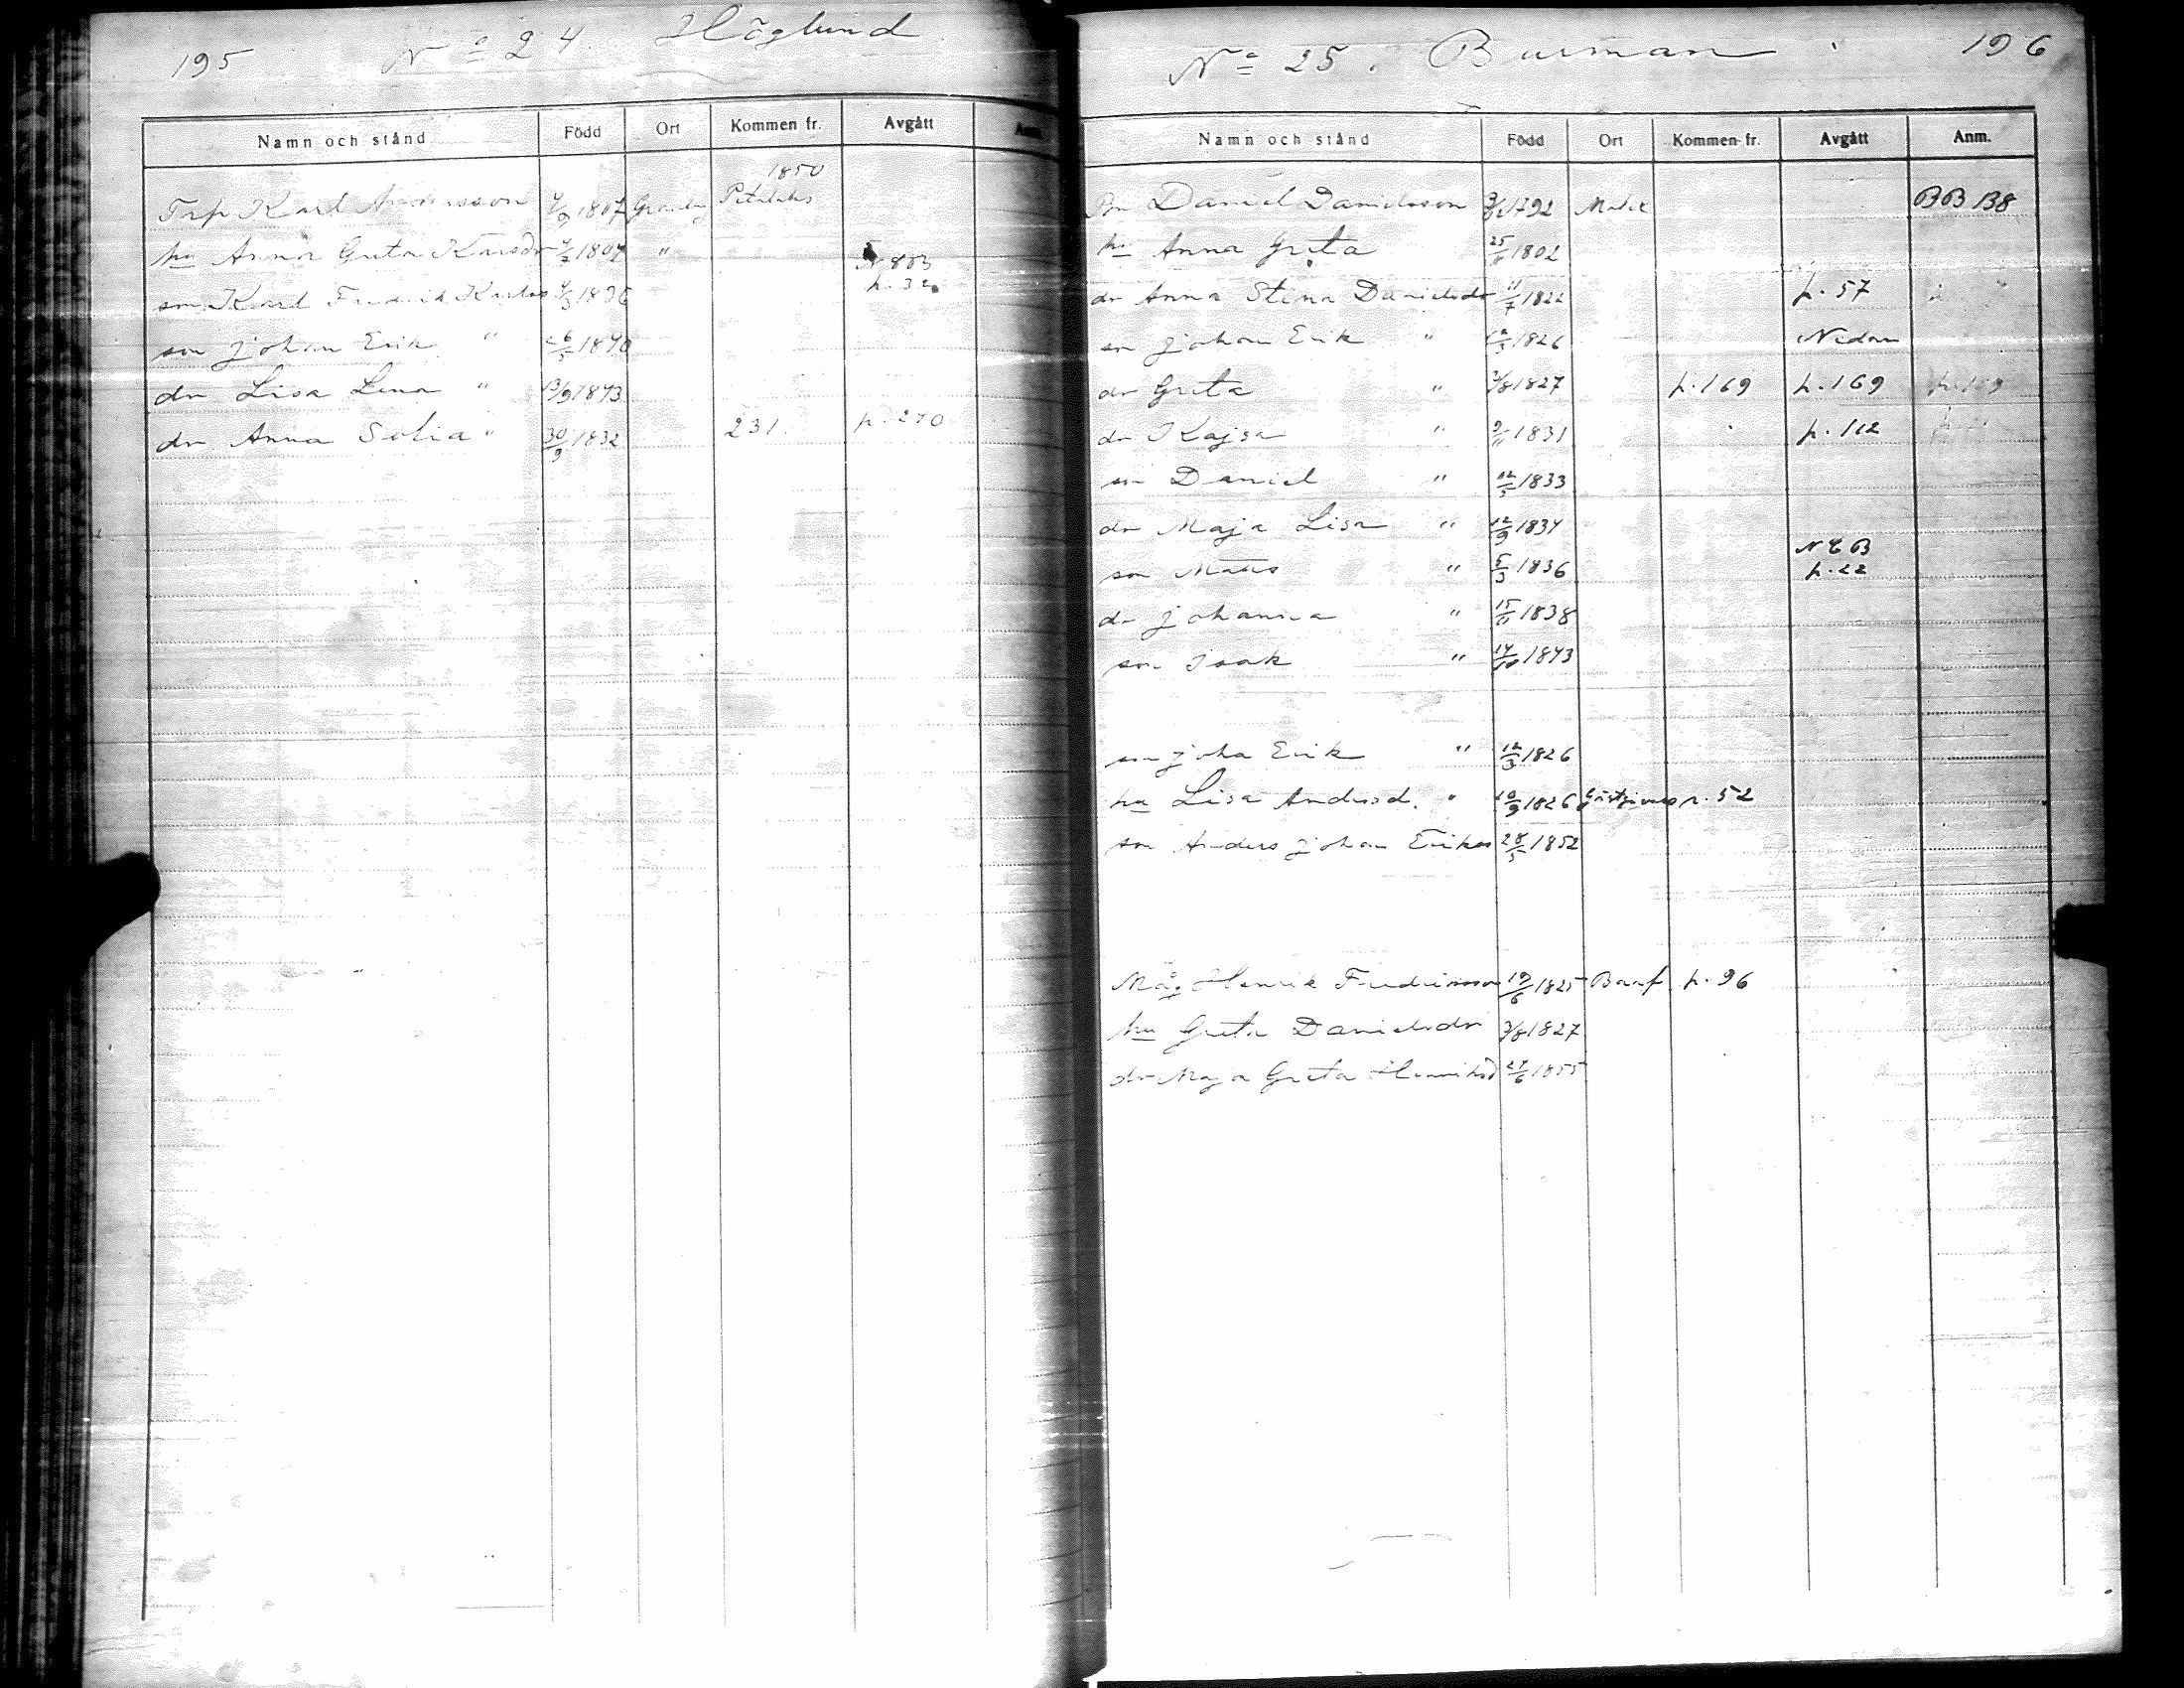 195 No 24. Höglund
Namn och stånd Född Ort Kommen fr. Avgått Anm.
1850
Torp Karl Andersson 1807 Petalaks
hu Anna Greta Karlsdr 1807 "
N8B3
son Karl Fredrik Karlss 4/3 1836 p. 32
son Johan Erik " 26/5 1840
dr Lisa Lena " 13/9 1843
dr Anna Sofia " 30/9 1832 231. p. 270
No 25. Burman 196
Namn och stånd Född Ort Kommen fr. Avgått Anm.
Bn Daniel Danielsson 1792 Malax BB B8
hu Anna Greta 1802
dr Anna Stina Danielsdr 11/7 1822 p. 57
son Johan Erik " 12/3 1826 Nedan
dr Greta " 3/8 1827 p. 169 p. 169 p. 169
dr Kajsa " 9/11 1831 p. 112
son Daniel " 12/5 1833
dr Maja Lisa " 12/9 1834
N8B
son Matts " 5/3 1836 p. 22
dr Johanna " 15/11 1838
son Isak " 14/10 1843
son Joha Erik " 12/3 1826
hu Lisa Andersd. " 1826 p. 52
son Anders Johan Eriks 28/5 1852
Måg Henrik Fredriksson 19/6 1825 Banf p. 96
hu Greta Danielsdr 3/8 1827
dr Maja Greta Henriksd 27/6 1855